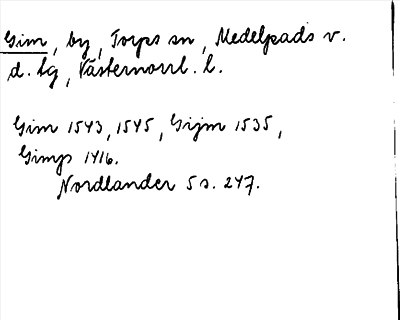 Gim, by, Torps sn, Medelpads v.
d. tg, Västernorrl. l.
Gim 1543, 1545, Gijm 1535,
Gimp 1416.
Nordlander 5 s. 247.